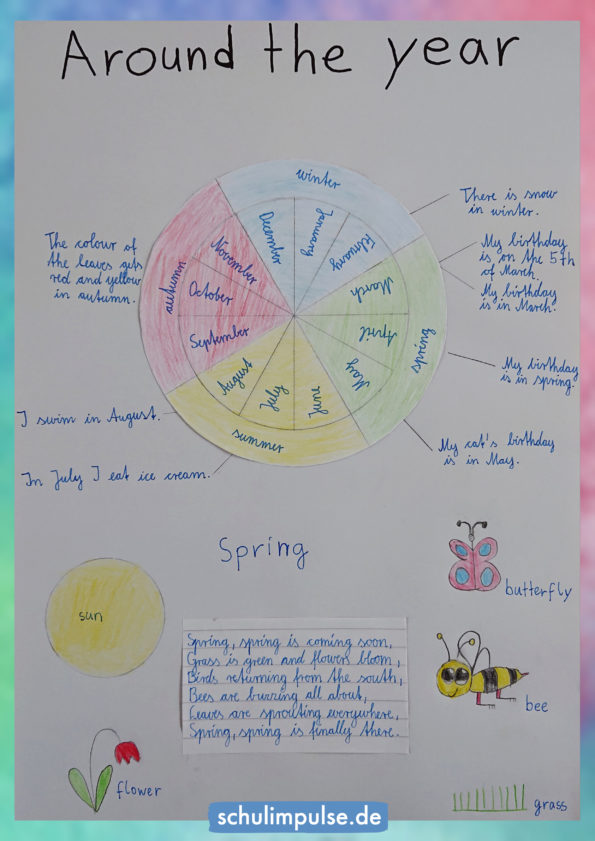 Around the year
winter
December
January
February
March
April
May
spring
June
July
August
summer
September
October
November
autumn
There is snow
in winter.
My birthday
is on the 5th
of March.
My birthday
is in March.
My birthday
is in spring.
My cat's birthday
is in May.
The colour of
the leaves gets
red and yellow
in autumn.
I swim in August.
In July I eat ice cream.
Spring
sun
Spring, spring is coming soon,
Grass is green and flowers bloom,
Birds returning from the south,
Bees are buzzing all about,
Leaves are sprouting everywhere,
Spring, spring is finally there.
butterfly
bee
flower
grass
schulimpulse.de